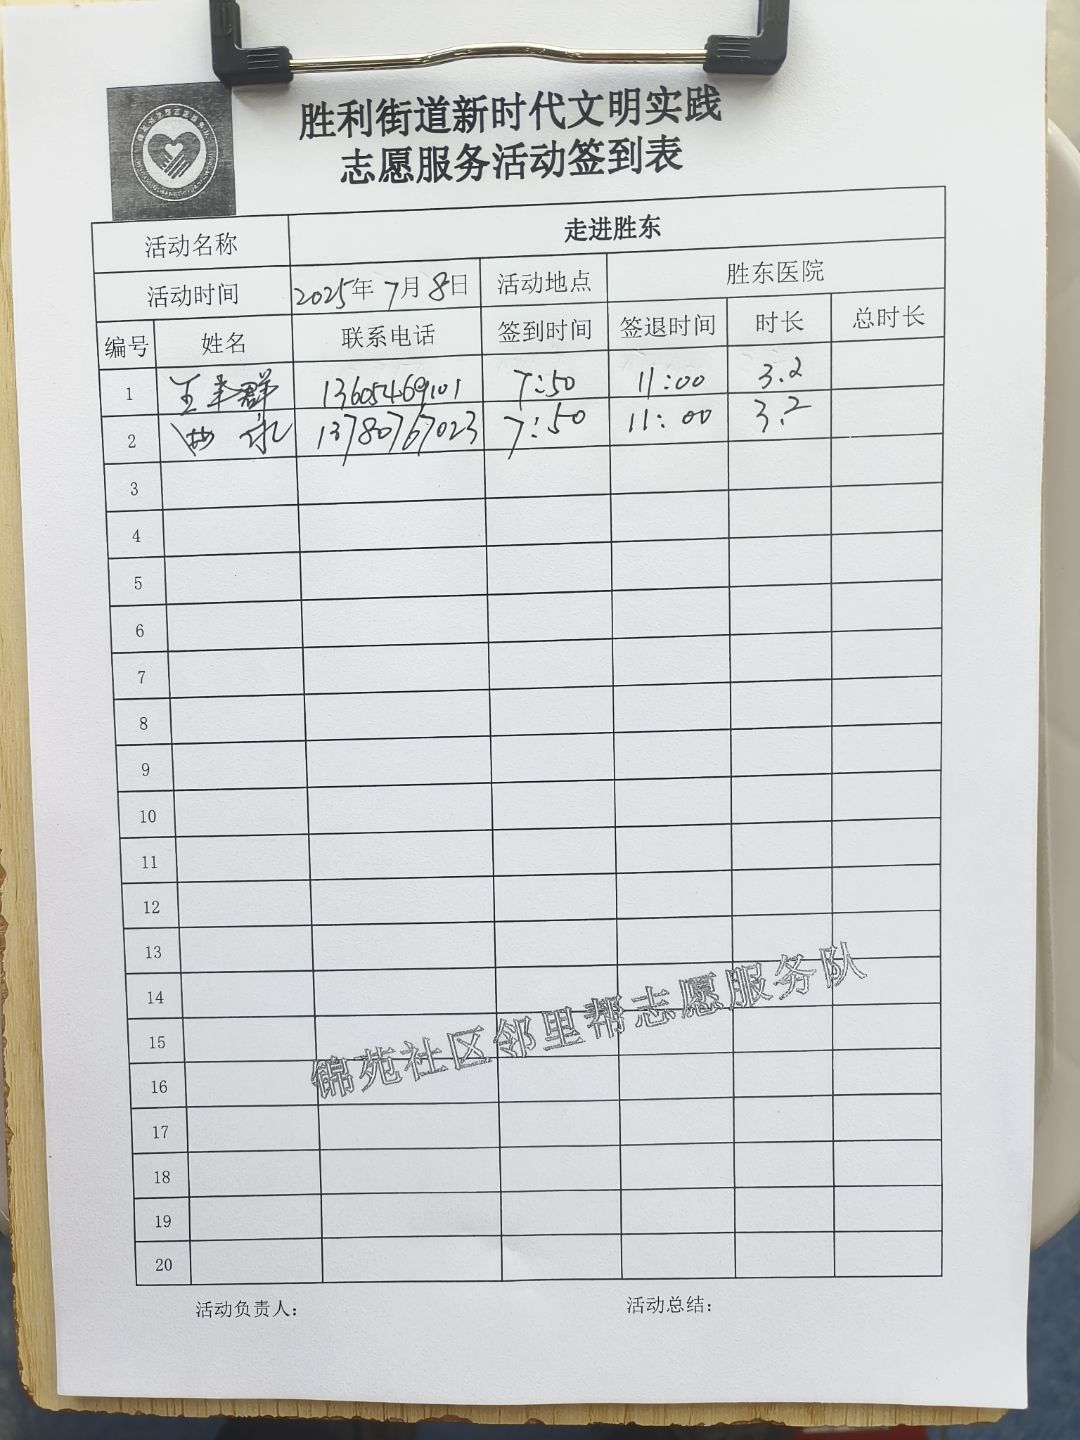 胜利街道新时代文明实践
志愿服务活动签到表
活动名称 走进胜东
活动时间 2025年 7月 8日 活动地点 胜东医院
编号 姓名 联系电话 签到时间 签退时间 时长 总时长
1 王 群 13605469101 7:50 11:00 3.2
2 13780767023 7:50 11:00 3.2
3
4
5
6
7
8
9
10
11
12
13
14
15
16
17
18
19
20
锦苑社区邻里帮志愿服务队
活动负责人： 活动总结：